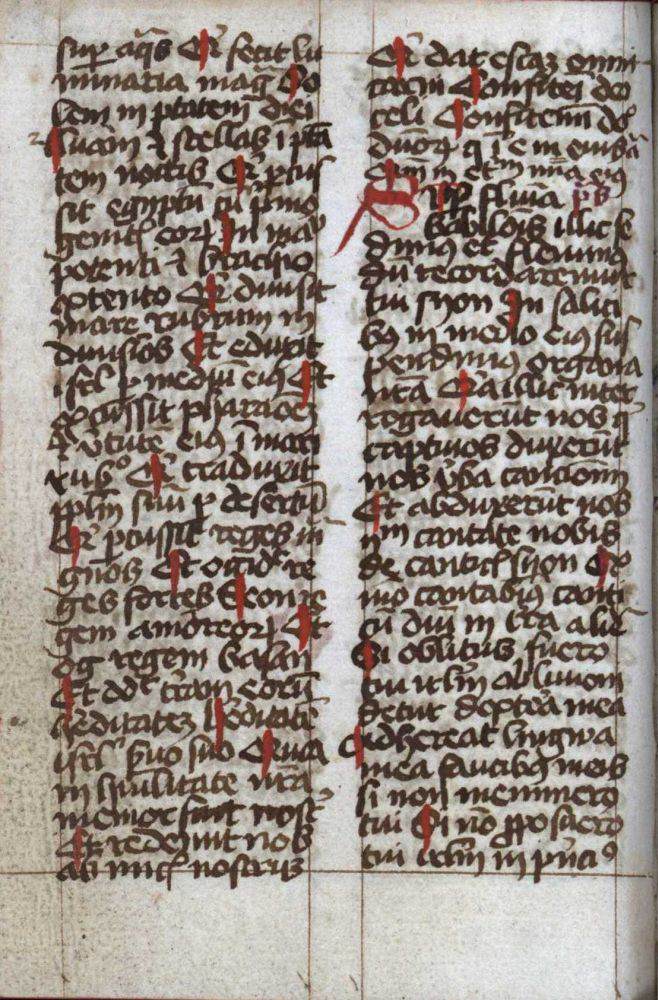 sup aq̄s Qr̄ fecit lu
minaria mag So
lem in ptatem diei
lunam ⁊ stellas ī ptā
tem noctis Qr̄ pcus
sit egyptū cū pmo
genit eorꝝ In manᵘ
potenti ⁊ brachio
extento Qr̄ diuisit
mare rubrum in
diuisiōs Et eduxit
isrl p mediū eiꝰ Et
excussit pharaoēꝫ
⁊ v̓tutē eiꝰ ī mari
rubᵒ Qr̄ traduxit
pplm̄ suū p desertū
Qr̄ pcussit reges m
gnōs Et occid re
ges fortes Seon re
gem amorreorꝝ Et
og regem basan
Et dd t̄ram eorū
hͤditatēꝫ hͤditatē
isrl s̓uo suo Quia
in hūilitate nr̄a
memor fuit nostͥ
Et redemit nos
ab inimic̄ nostris
Qr̄ dat escaꝫ omni
carni Confitei deo
celi Confitemī dō
dnōꝝ q̄ ī e m eius ā
Qm̄ in etn̄m mīa eiꝰ
Sup flumīa ps
babiloīs illic se
dimꝰ et fleuimꝰ
dū recordaremur
tui syon In salici
bꝰ in medio eiꝰ sus
pendimꝰ organa
nr̄a Quia illic inter
rogauerūt nos q̄
captiuos duxerūt
nos v̓ba cantionū
Et abduxerūt nos
ym̄ cantate nobis
de cantic̄ syon Qͦ
mō cantabimꝰ canti
cū dnī in t̄ra alie
Si oblitus fuero
tui irlm̄ obliuioni
detur dext̓a mea
Adhereat lingwa
mea faucibꝰ meis
si non meminero
tui Si nō ꝓposuero
tui irlm̄ in pͥnciᵒ